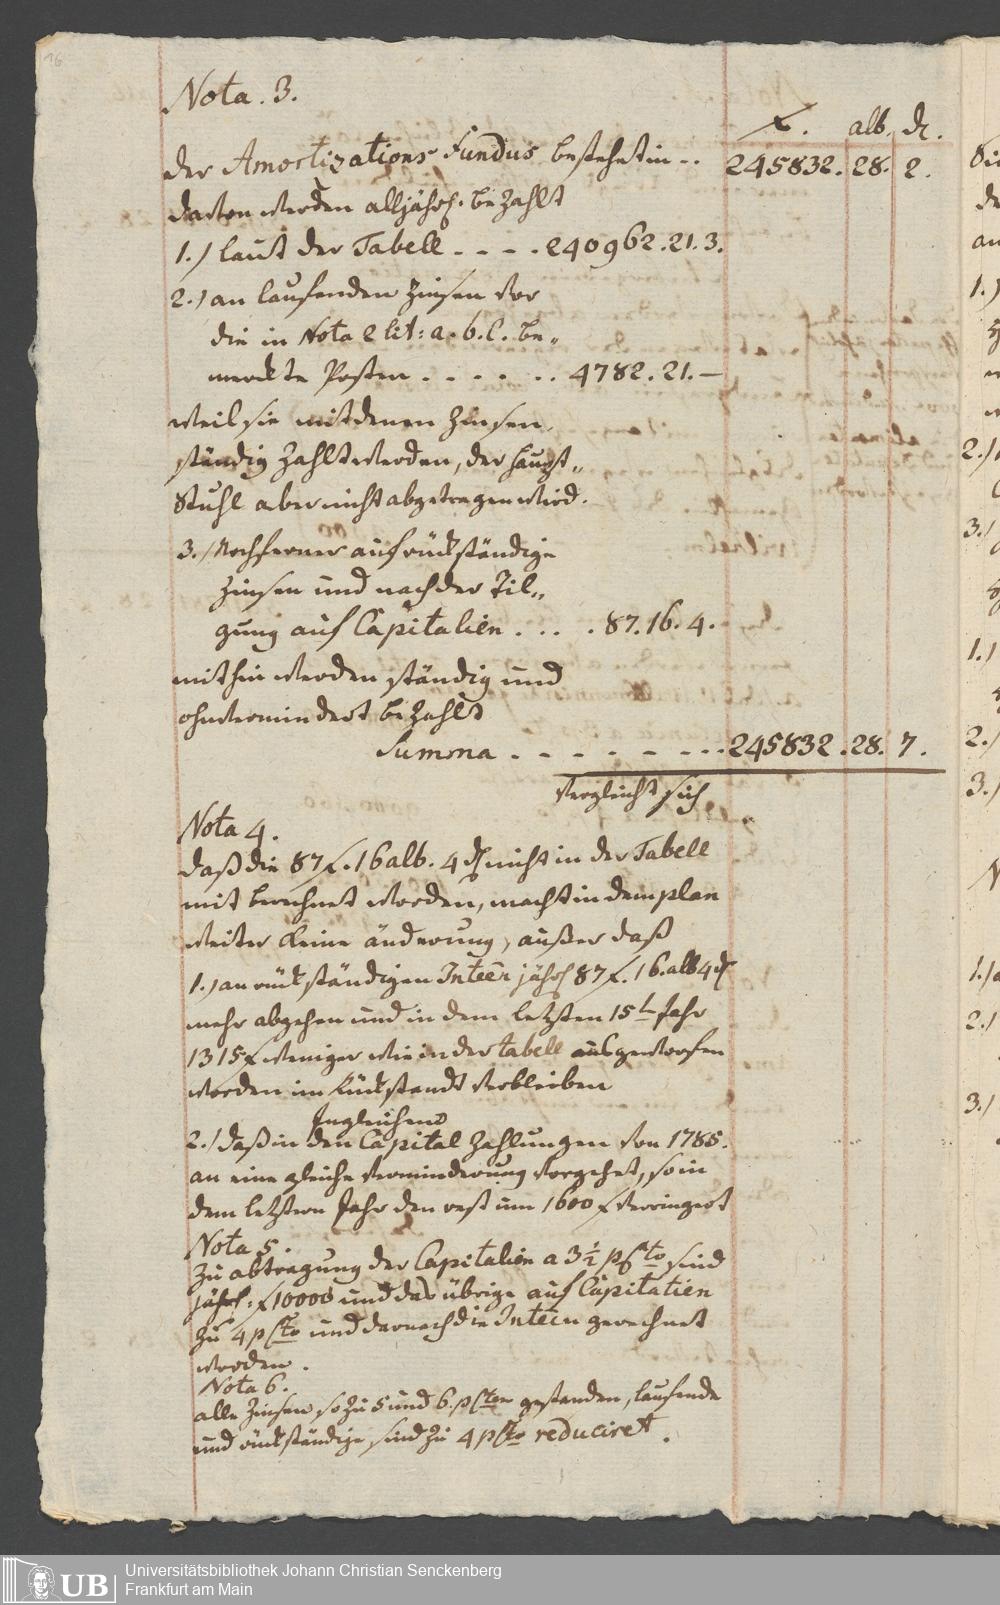 16
Nota. 3.
f. alb. d.
der Amortizations Fundus bestehet in .. 245832. 28. 2.
davon werden alljährl. bezahlt
1.) laut der Tabell . - - - . 240962. 21. 3.
2.) an laufenden Zinsen vor
die in Nota 2 lit: a. b. c. be„
merckte Posten . . . . . . . 4782. 21. —
weil sie mit denen Zinsen
ständig zahlt werden, der Haupt„
Stuhl aber nicht abgetragen wird.
3.) Noch ferner auf rückständige
Zinsen und nach der Til„
gung auf Capitalien . . . . 87. 16. 4.
mithin werden ständig und
ohnvermindert bezahlt
Summa . - - - - - ... 245832. 28. 7.
vergleicht sich
Nota 4.
daß die 87 f. 16 alb. 4 d nicht in der Tabell
mit berechnet worden, macht in dem plan
weiter keine änderung, außer daß
1.) an rückständigen Inteen jährl 87 f. 16. alb 4 d
mehr abgehen und in dem letzten 15t Jahr
1315 f weniger wie in der tabell ausgeworfen
worden im Rückstandt verbleiben
Ingleichen
2.) daß in den Capital Zahlungen von 1785.
an eine gleiche Verminderung vorgehet, so in
dem letztern Jahr den rest um 1600 f verringert
Nota 5.
Zu abtragung der Capitalien a 3½ p Cto sind
jährl: f 10000 und das übrige auf Capitalien
zu 4 p Cto und darnach die Inteen gerechnet
worden.
Nota 6.
alle Zinsen so zu 5 und 6. p Cten gestanden, laufende
und rückständige sind zu 4 p Cto reduciret.
UB
Universitätsbibliothek Johann Christian Senckenberg
Frankfurt am Main